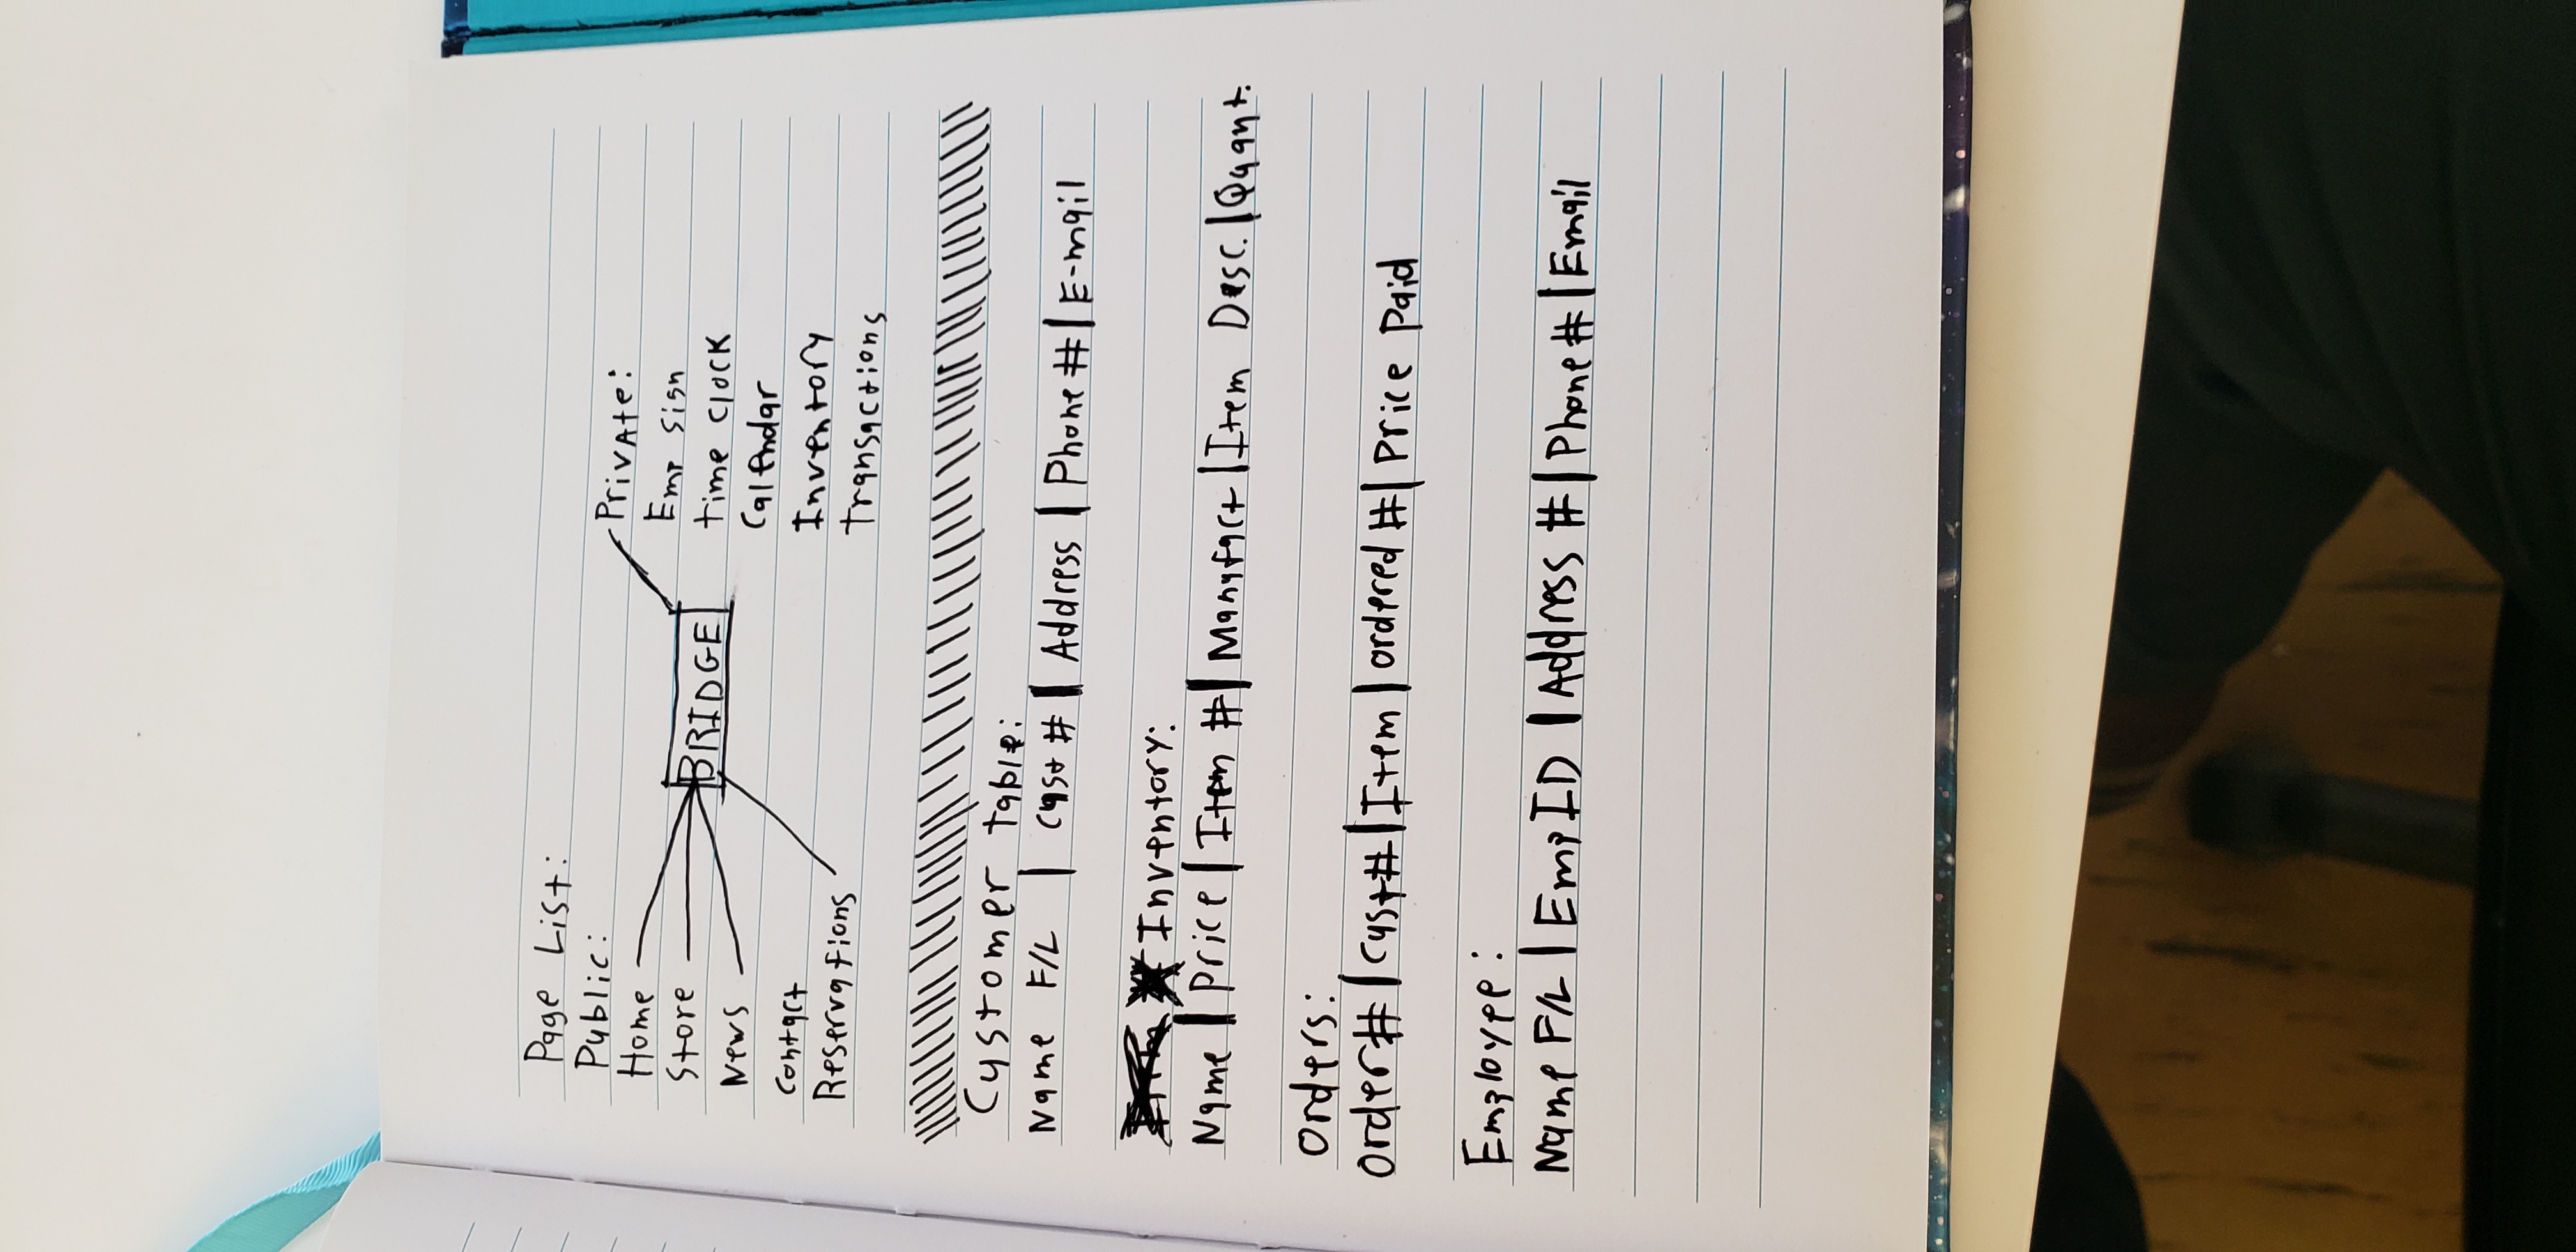 Page List:
Public:
Home
Store
News
Contact
Reservations
BRIDGE
Private:
Emp Sign
time clock
Calendar
Inventory
transactions
Customer table:
Name F/L | Cust # | Address | Phone # | E-mail
Inventory:
Name | Price | Item # | Manufact | Item Desc. | Quant.
Orders:
Order# | Cust# | Item | ordered # | Price Paid
Employee:
Name F/L | Emp ID | Address # | Phone # | Email